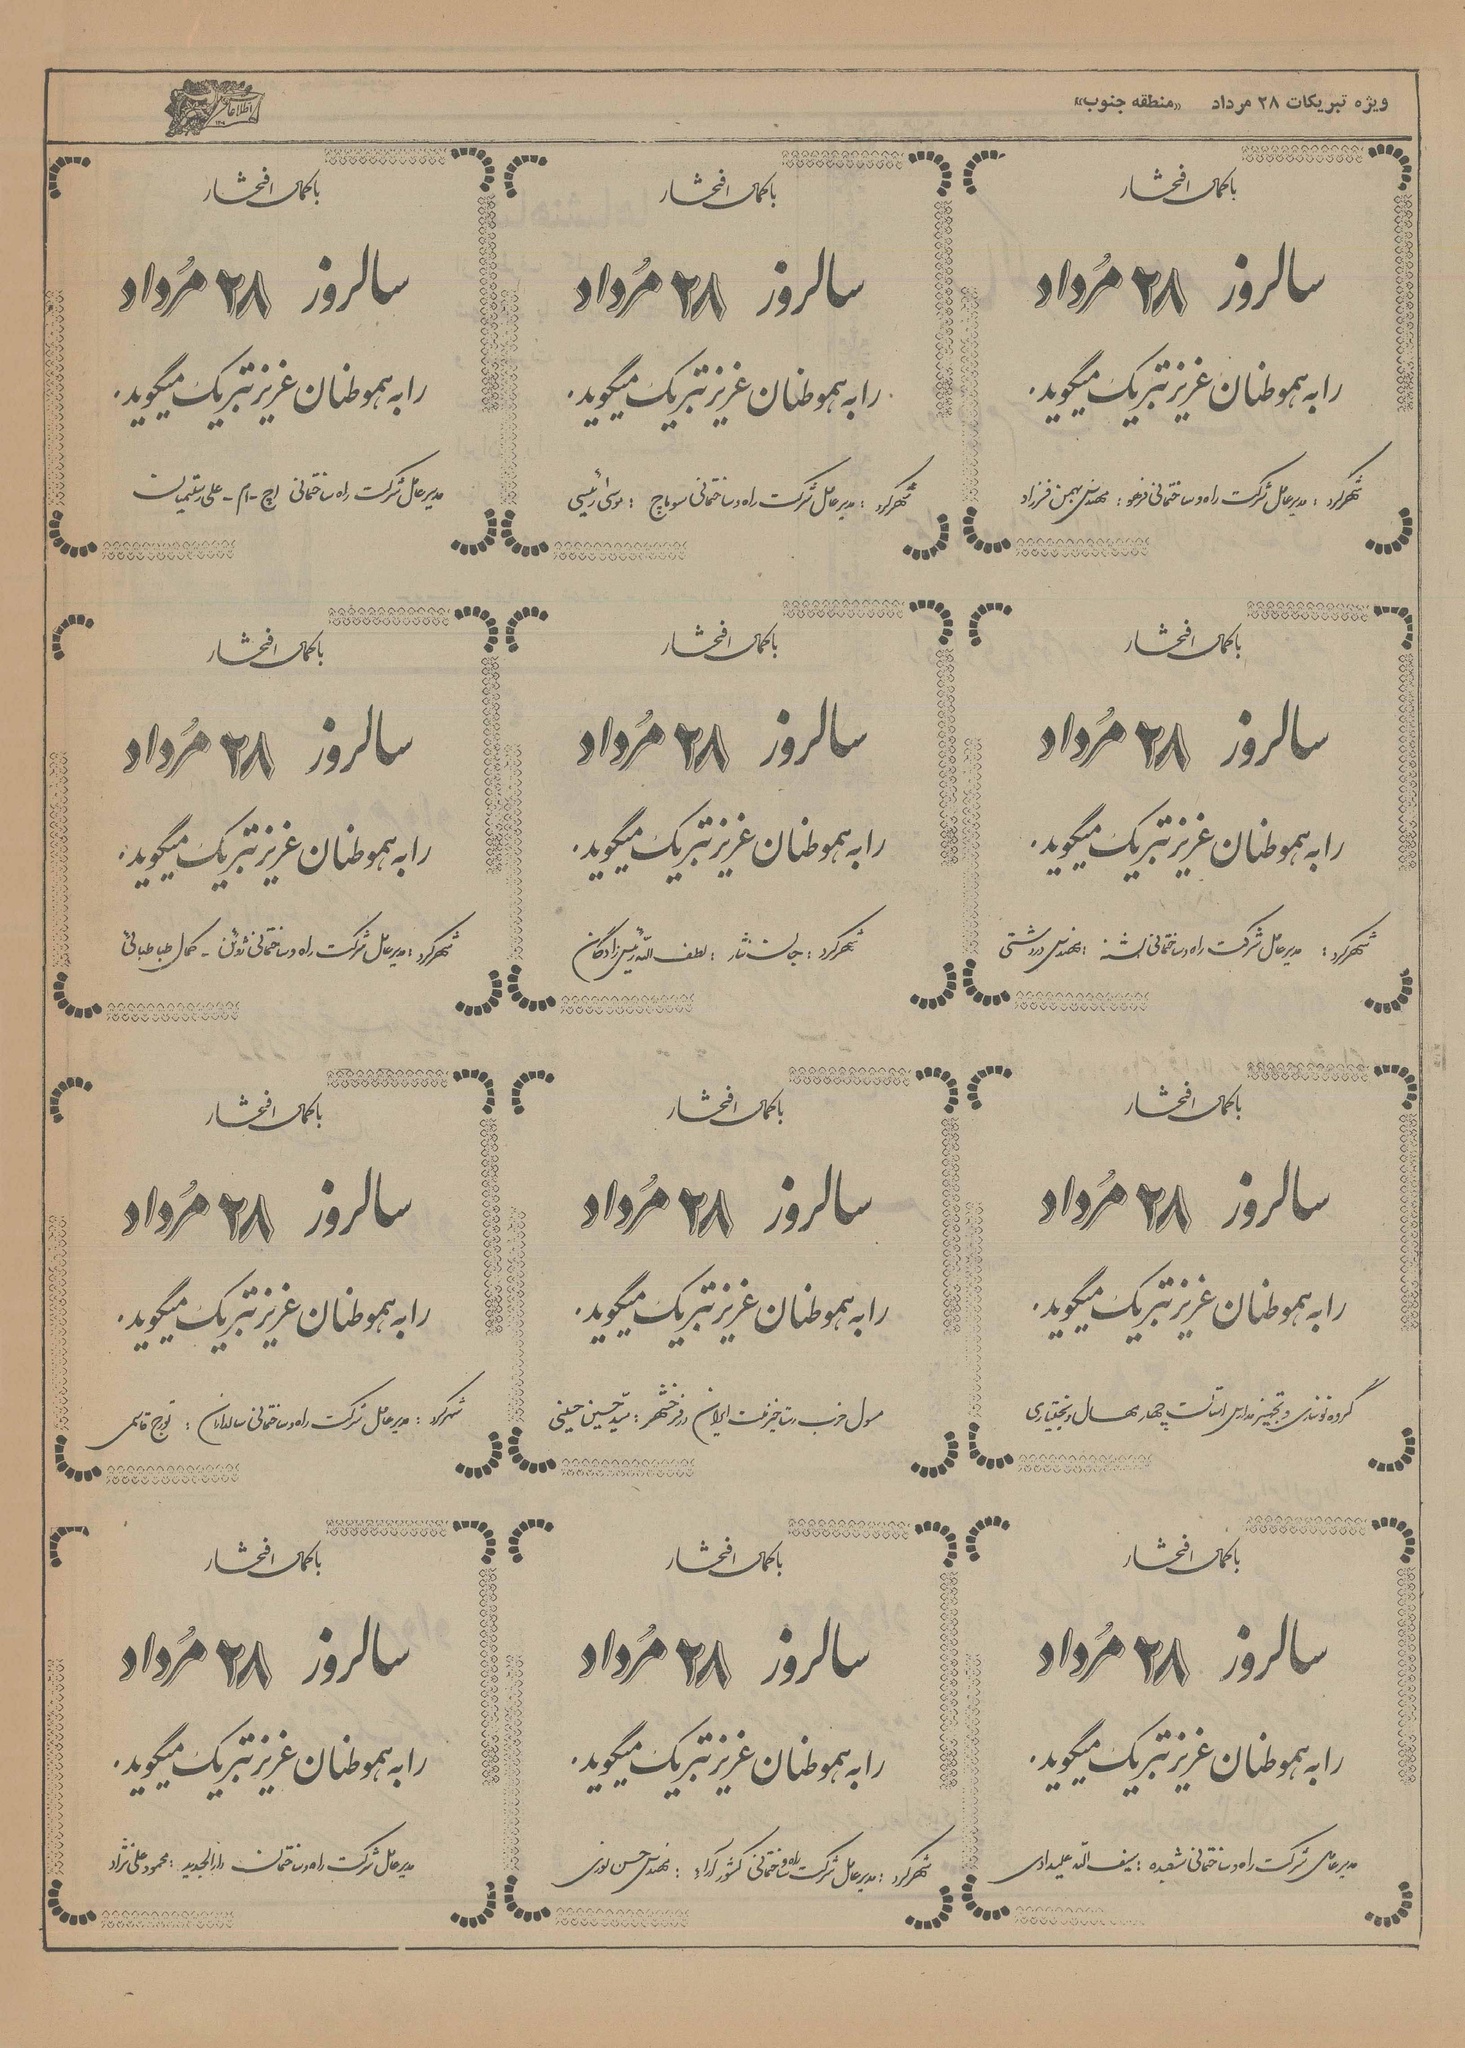 ویژه تبریکات ۲۸ مرداد «منطقه جنوب»
اطلاعات
با کمال افتخار
سالروز ۲۸ مُرداد
را به هموطنان عزیز تبریک میگوید.
شهرکرد : مدیرعامل شرکت راه و ساختمانی : مهندس بهمن فرزاد
با کمال افتخار
سالروز ۲۸ مُرداد
را به هموطنان عزیز تبریک میگوید.
شهرکرد : مدیرعامل شرکت راه و ساختمانی سوباچ : موسی رئیسی
با کمال افتخار
سالروز ۲۸ مُرداد
را به هموطنان عزیز تبریک میگوید.
مدیرعامل شرکت راه ساختمانی اچ - ام - علی رستمیان
با کمال افتخار
سالروز ۲۸ مُرداد
را به هموطنان عزیز تبریک میگوید.
شهرکرد : مدیرعامل شرکت راه و ساختمانی : مهندس دردشتی
با کمال افتخار
سالروز ۲۸ مُرداد
را به هموطنان عزیز تبریک میگوید.
شهرکرد : جان نثار : لطف الله رئیس زادگان
با کمال افتخار
سالروز ۲۸ مُرداد
را به هموطنان عزیز تبریک میگوید.
شهرکرد : مدیرعامل شرکت راه و ساختمانی - کمال طباطبائی
با کمال افتخار
سالروز ۲۸ مُرداد
را به هموطنان عزیز تبریک میگوید.
گروه نوسازی و تجهیز مدارس استان چهارمحال و بختیاری
با کمال افتخار
سالروز ۲۸ مُرداد
را به هموطنان عزیز تبریک میگوید.
مسول حزب رستاخیز ملت ایران در فرخشهر : سید حسین حسینی
با کمال افتخار
سالروز ۲۸ مُرداد
را به هموطنان عزیز تبریک میگوید.
شهرکرد : مدیرعامل شرکت راه و ساختمانی : تورج قاسمی
با کمال افتخار
سالروز ۲۸ مُرداد
را به هموطنان عزیز تبریک میگوید.
مدیرعامل شرکت راه و ساختمانی : سیف الله علیدادی
با کمال افتخار
سالروز ۲۸ مُرداد
را به هموطنان عزیز تبریک میگوید.
شهرکرد : مدیرعامل شرکت راه و ساختمانی کشور آراء : مهندس حسن نوری
با کمال افتخار
سالروز ۲۸ مُرداد
را به هموطنان عزیز تبریک میگوید.
مدیرعامل شرکت راه و ساختمان دارالجدید : محمود علی نژاد